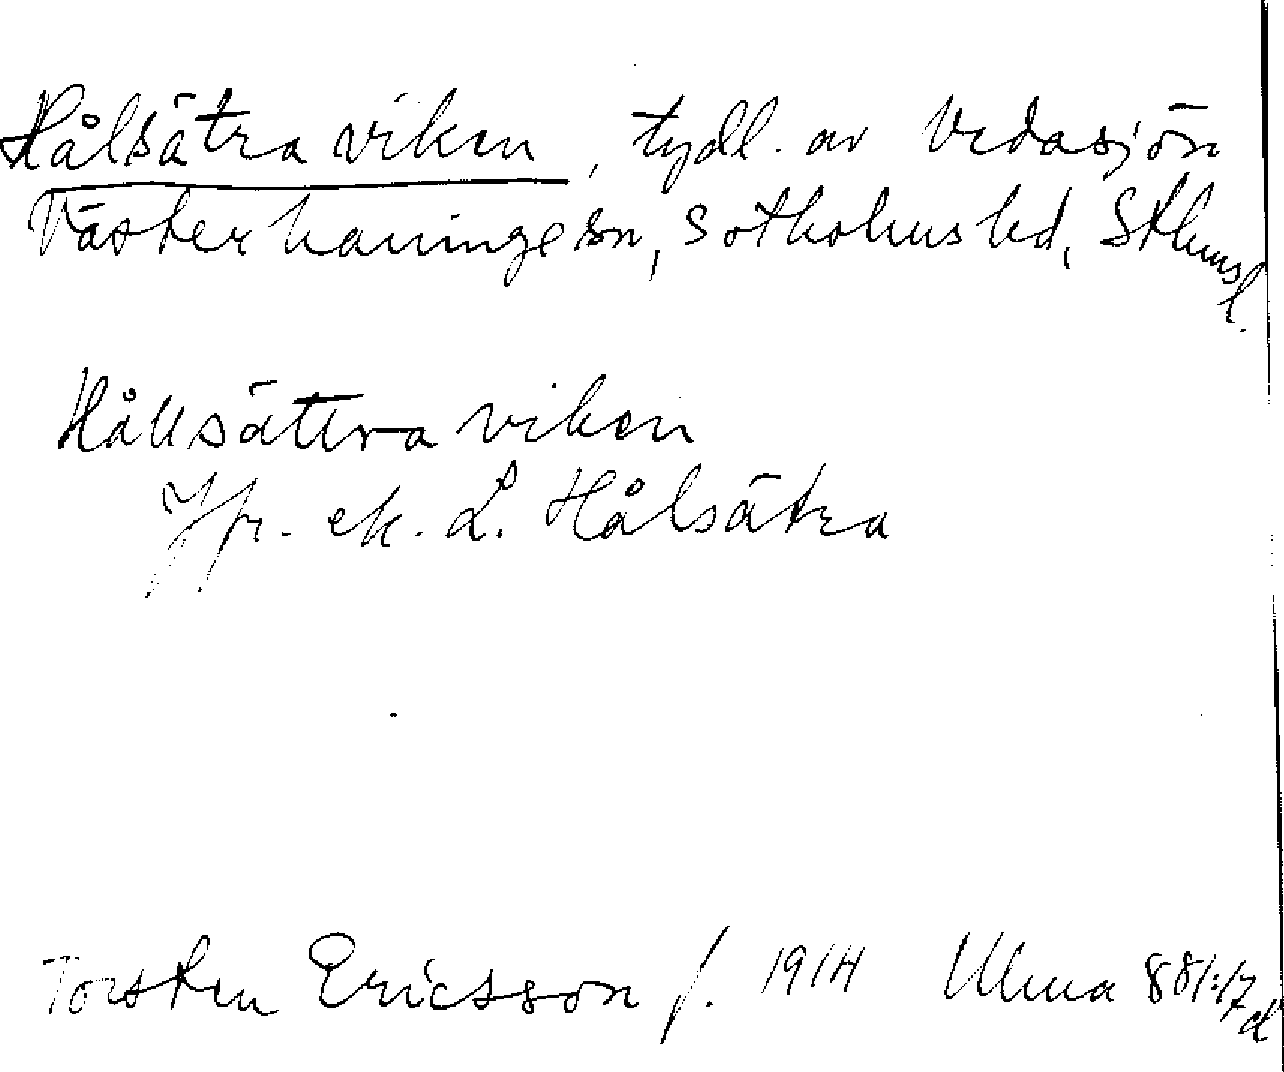 Hålsätra viken, tydl. av Vedasjön
Västerhaninge sn, Sotholms hd, Sthms l.
Hållsättra viken
Jfr. ek. L. Hålsätra
Torsten Ericsson f. 1914 Ulma 881:17 d